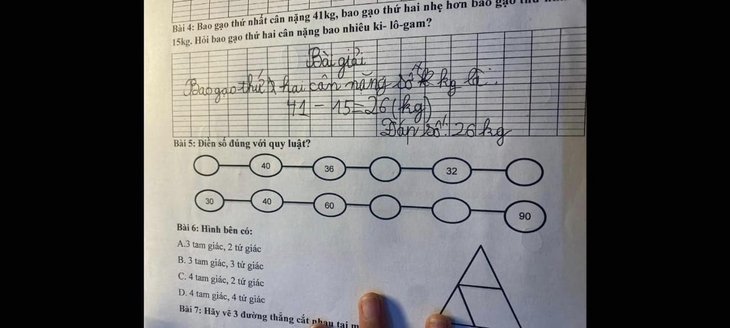 Bài 4: Bao gạo thứ nhất cân nặng 41kg, bao gạo thứ hai nhẹ hơn bao gạo thứ
15kg. Hỏi bao gạo thứ hai cân nặng bao nhiêu ki- lô-gam?
Bài giải
Bao gạo thứ hai cân nặng số kg là:
41 - 15 = 26 (kg)
Đáp số: 26 kg
Bài 5: Điền số đúng với quy luật?
40 36 32
30 40 60 90
Bài 6: Hình bên có:
A.3 tam giác, 2 tứ giác
B. 3 tam giác, 3 tứ giác
C. 4 tam giác, 2 tứ giác
D. 4 tam giác, 4 tứ giác
Bài 7: Hãy vẽ 3 đường thẳng cắt nhau tại